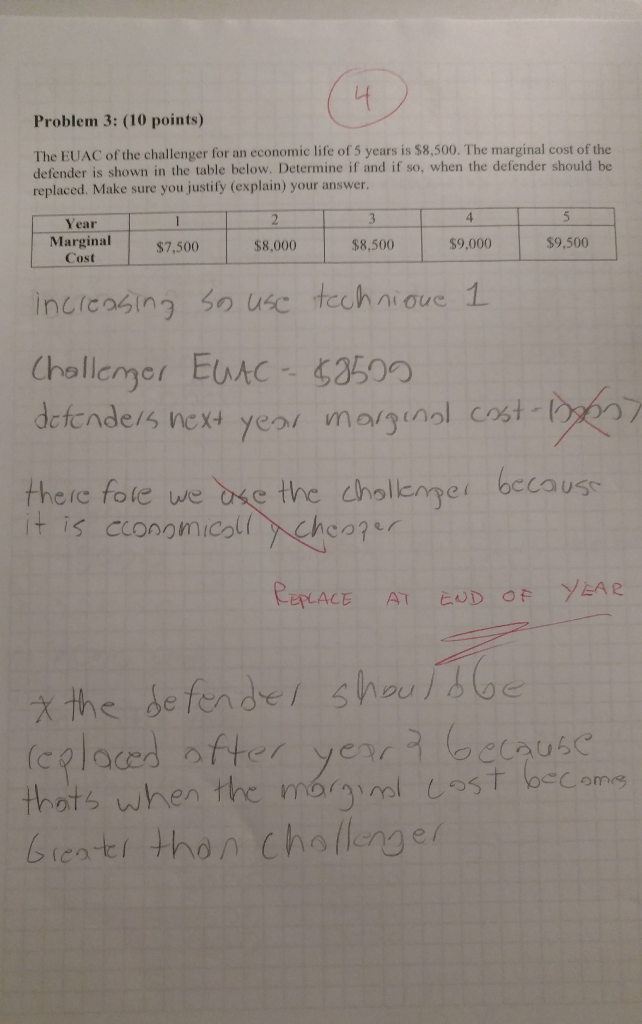 4
Problem 3: (10 points)
The EUAC of the challenger for an economic life of 5 years is $8,500. The marginal cost of the
defender is shown in the table below. Determine if and if so, when the defender should be
replaced. Make sure you justify (explain) your answer.
Year 1 2 3 4 5
Marginal Cost $7,500 $8,000 $8,500 $9,000 $9,500
increasing so use technioue 1
Challenger EUAC - $8500
defenders next year marginal cost -
there fore we use the challenger because
it is economically cheaper
REPLACE AT END OF YEAR
* the defender should be
replaced after year 3 because
thats when the marginal cost becomes
Greater than challenger